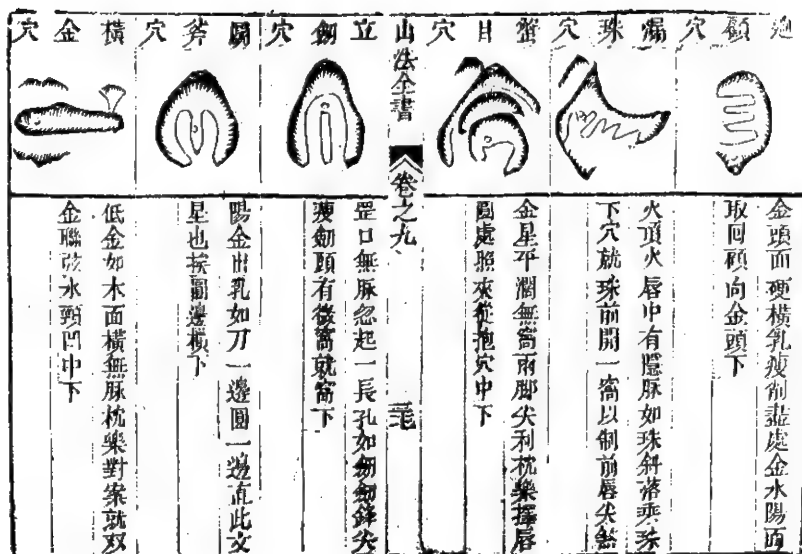 迴顧穴
金頭面硬橫乳瘦削盡處金水陽面
取回顧向金頭下
漏珠穴
火頂火唇中有隱脉如珠斜落乘珠
下穴就珠前開一窩以制前唇尖煞
蟹目穴
金星平濶無窩兩脚尖利枕樂擇唇
圓處照來從抱穴中下
山法全書
卷之九
立劍穴
罡口無脉忽起一長孔如劍劍鋒尖
瘦劍頭有微窩就窩下
斧穴
陽金出乳如刀一邊圓一邊直此文
星也挨圓邊橫下
橫金穴
低金如木面橫無脉枕樂對案就双
金聯弦水頸凹中下